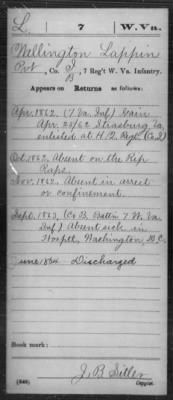 L. | 7 | W. Va.
Wellington Lappin
Pvt, Co. I
B, 7 Reg't W. Va. Infantry.
Appears on Returns as follows:
Apr. 1862. (7 Va Inf) Gain
Apr. 24/62 Strasburg, Va,
enlisted at H. Q. Regt (Co. I)
Oct. 1862. Absent on the Rip
Raps.
Nov. 1862. Absent in arrest
or confinement.
Sept. 1863, (Co B, Batt'n 7 W. Va
Inf) Absent sick in
Hospital, Washington, D. C.
June 1864 Discharged
Book mark:
J. B. Sitler
(546) Copyist.